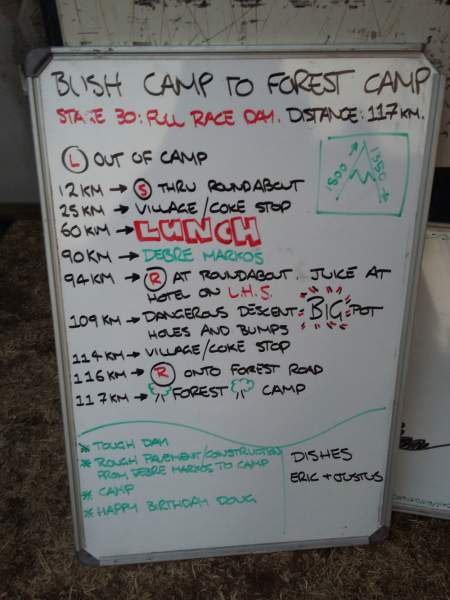 BUSH CAMP TO FOREST CAMP
STAGE 30: FULL RACE DAY. DISTANCE: 117 KM.
L OUT OF CAMP
12 KM → S THRU ROUNDABOUT
25 KM → VILLAGE/COKE STOP
60 KM → LUNCH
90 KM → DEBRE MARKOS
94 KM → R AT ROUNDABOUT. JUICE AT
HOTEL ON L.H.S.
109 KM → DANGEROUS DESCENT. BIG POT
HOLES AND BUMPS
114 KM → VILLAGE/COKE STOP
116 KM → R ONTO FOREST ROAD
117 KM → FOREST CAMP
1350
* TOUGH DAY
* ROUGH PAVEMENT/CONSTRUCTION
FROM DEBRE MARKOS TO CAMP
* CAMP
* HAPPY BIRTHDAY DOUG
DISHES
ERIC + JUSTUS